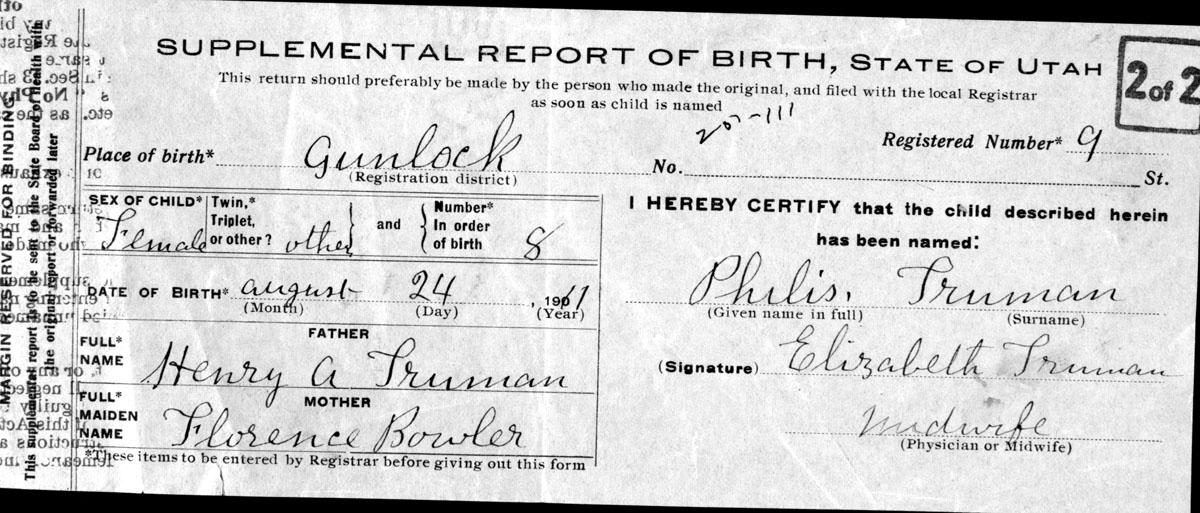 SUPPLEMENTAL REPORT OF BIRTH, STATE OF UTAH
This return should preferably be made by the person who made the original, and filed with the local Registrar
as soon as child is named
2 of 2
207-111
Registered Number* 9
Place of birth* Gunlock No. St.
(Registration district)
SEX OF CHILD* Female
Twin,* Triplet, or other? other
and
Number* In order of birth 8
DATE OF BIRTH* August 24, 1911
(Month) (Day) (Year)
FATHER
FULL* NAME Henry A Truman
MOTHER
FULL* MAIDEN NAME Florence Bowler
*These items to be entered by Registrar before giving out this form
I HEREBY CERTIFY that the child described herein
has been named:
Philis. Truman
(Given name in full) (Surname)
(Signature) Elizabeth Truman
Midwife
(Physician or Midwife)
MARGIN RESERVED FOR BINDING
This supplemental report to be sent to the State Board of Health with
the original report or forwarded later